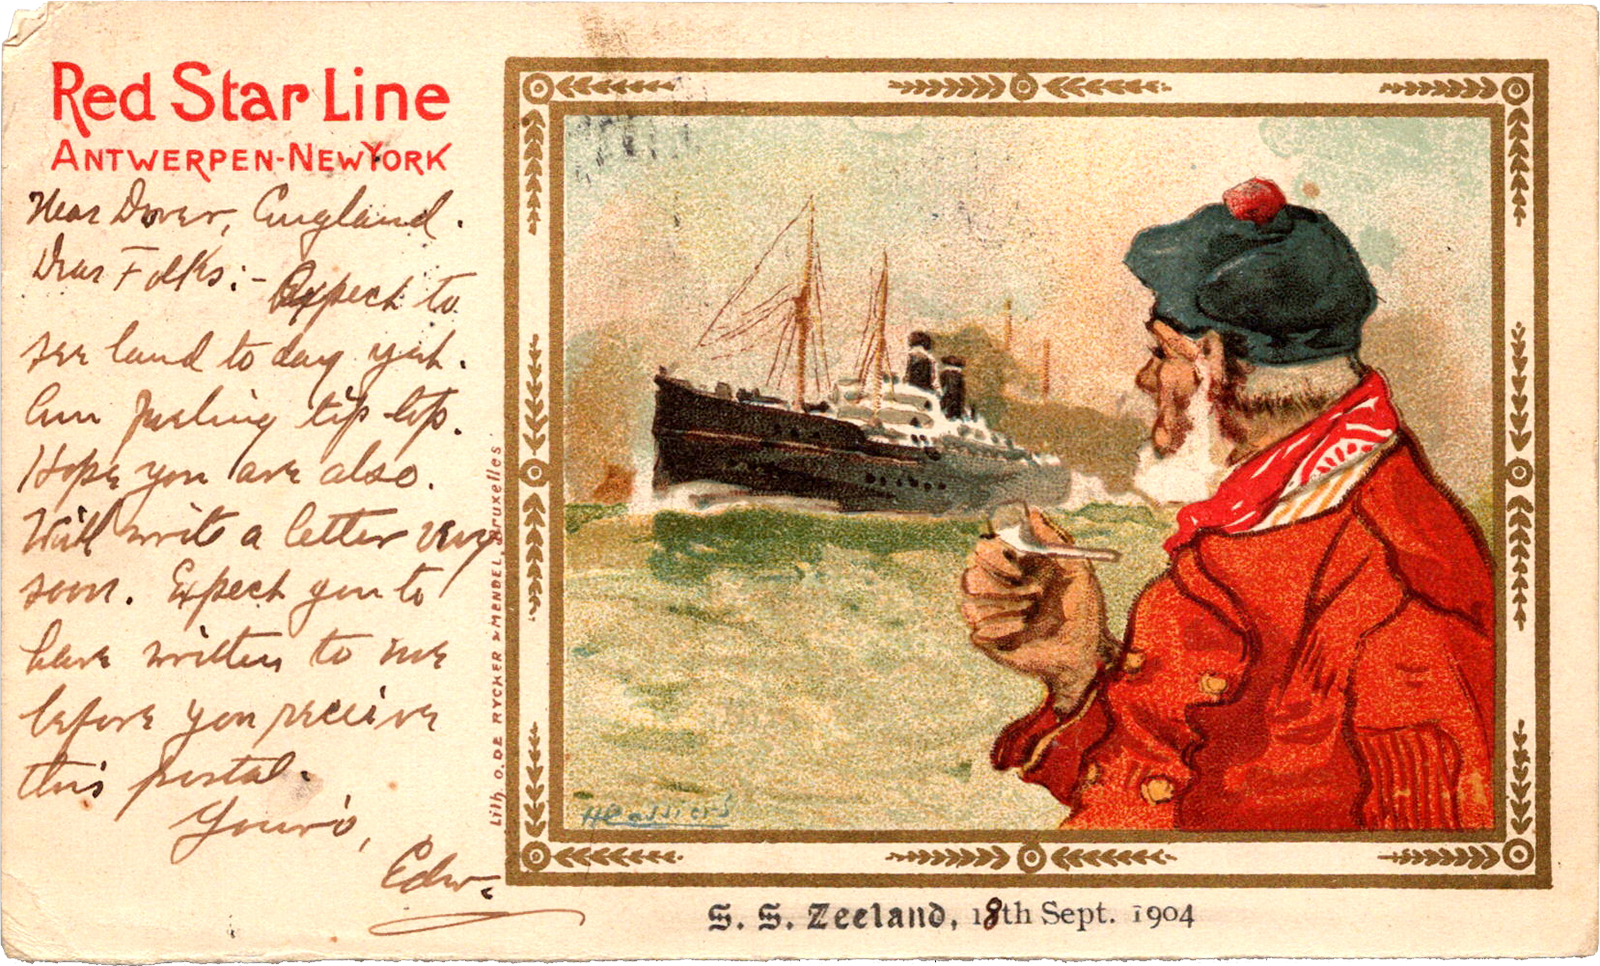 Red Star Line
ANTWERPEN-NEWYORK
Near Dover, England.
Dear Folks:-
Expect to
see land to day yet.
Am feeling tip top.
Hope you are also.
Will write a letter very
soon. Expect you to
have written to me
before you receive
this postal.
Yours,
Edw.
Lith. O. DE RYCKER & MENDEL, Bruxelles
HCassiers
S. S. Zeeland, 18th Sept. 1904